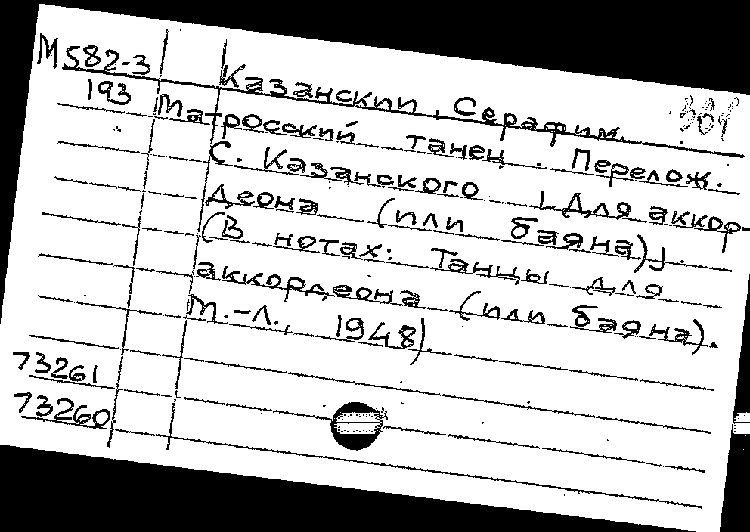 М582-3
193
Казанский, Серафим.
Матросский танец. Перелож.
С. Казанского [Для аккор-
деона (или баяна)].
(В нотах: Танцы для
аккордеона (или баяна).
М.-Л., 1948).
73261
73260